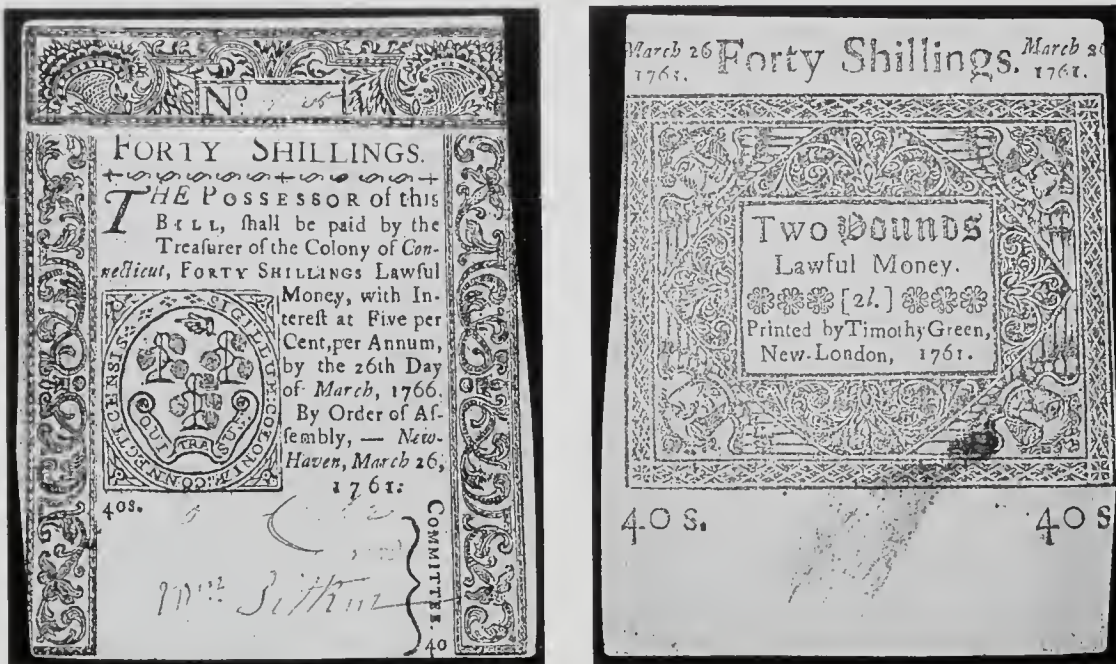 No.
FORTY SHILLINGS.
THE POSSESSOR of this
BILL, ſhall be paid by the
Treaſurer of the Colony of Con-
necticut, FORTY SHILLINGS Lawful
Money, with In-
tereſt at Five per
Cent, per Annum,
by the 26th Day
of March, 1766.
By Order of Aſ-
ſembly, — New-
Haven, March 26,
1761:
SIGILLUM COLONIÆ CONECTICENSIS
QUI TRA SUST
40s.
COMMITTEE.
Wm Pitkin
40
March 26 Forty Shillings. March 26
1761. 1761.
Two Pounds
Lawful Money.
[2l.]
Printed by Timothy Green,
New-London, 1761.
40 s. 40 s